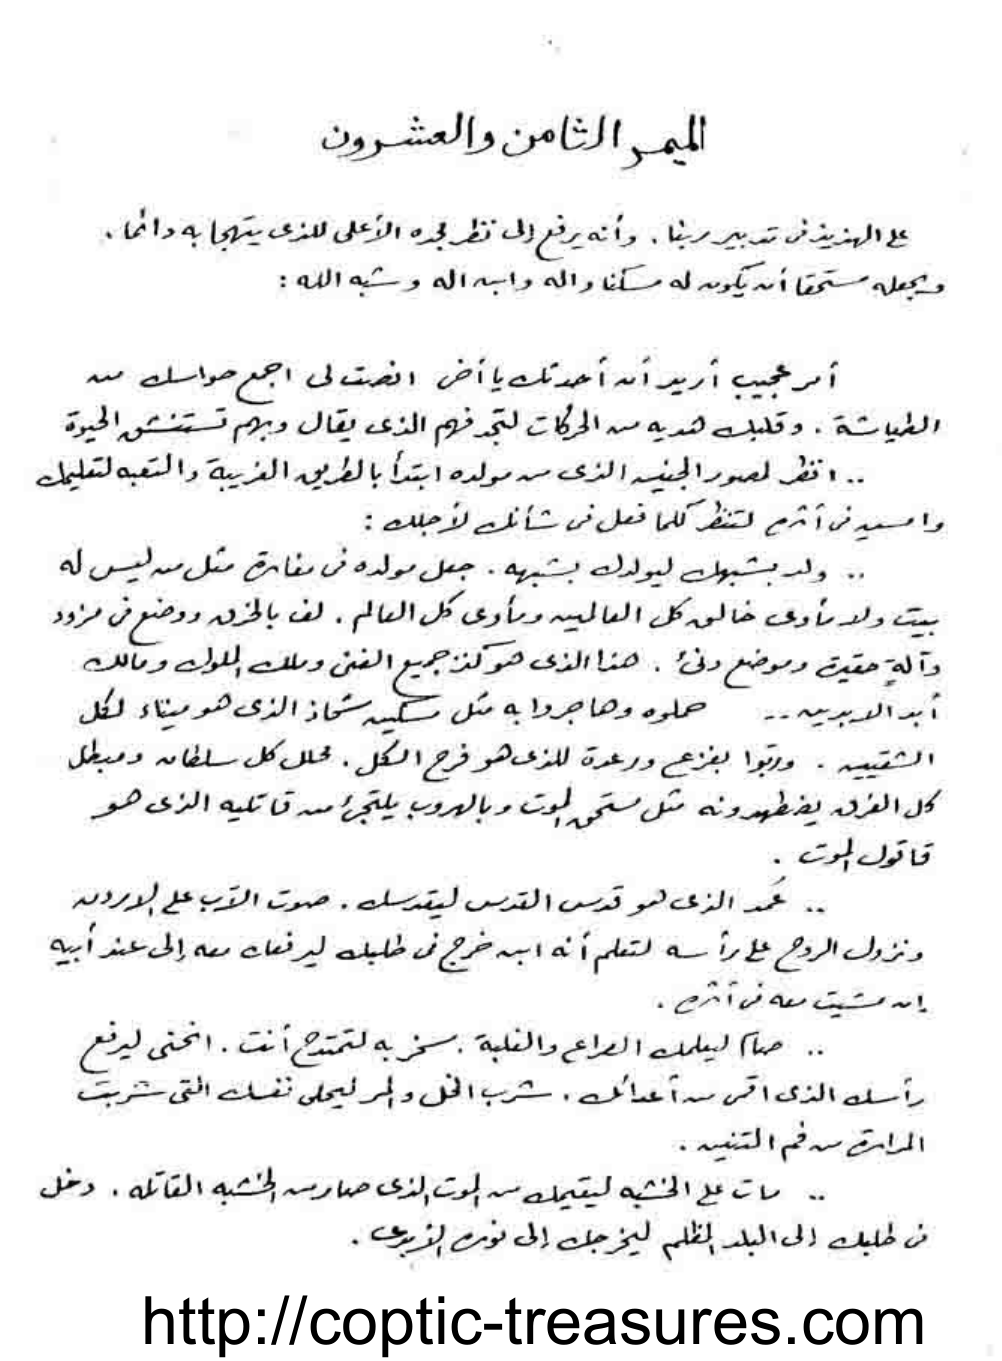 الميمر الثامن والعشرون
على الهذيذ فى تدبير ربنا . وأنه يرفع إلى نظر مجده الأعلى للذى يتهجا به دائما .
ويجعله مستحقا أن يكون له مسكنا واله وابن اله وشبه الله :
أمر عجيب أريد أن أحدثك يا أخى انصت لى اجمع حواسك من
الطياشة . وقلبك هديه من الحركات لتجد فهم الذى يقال وبهم تستنشق الحيوة
.. انظر لصور الجنين الذى من مولده ابتدأ بالطريق الغريبة والتعبه لتعليمك
وامسيه فى أثره لتنظر كلما فعل فى شأنك لأجلك :
.. ولد بشبهك ليولدك بشبهه . جعل مولده فى مغارة مثل من ليس له
بيت ولا مأوى خالق كل العالمين ومأوى كل العالم . لف بالخرق ووضع فى مزود
وآلةٍ حقيرة وموضع دنئ . هذا الذى هو كنز جميع الغنى وملك الملوك ومالك
أبد الابدين .. حملوه وهاجروا به مثل مسكين شحاذ الذى هو ميناء لكل
الشقيين . وربوا بفزع ورعدة للذى هو فرح الكل . محلل كل سلطان ومبطل
كل الفرق يضطهدونه مثل مستحق الموت وبالهروب يلتجئ من قاتليه الذى هو
قاتول الموت .
.. عُمد الذى هو قدس القدس ليقدسك . صوت الآب على الاردن
ونزول الروح على رأسه لتعلم أنه ابن خرج فى طلبك ليرفعك معه إلى عند أبيه
إن مشيت معه فى أثره .
.. صام ليعلمك الصراع والغلبة . سخر به لتمتدح أنت . انحنى ليرفع
رأسك الذى اقى من أعدائك . شرب الخل والمر ليحلى نفسك التى شربت
المرارة من فم التنين .
.. مات على الخشبه ليقيمك من الموت الذى صار من الخشبه القاتله . دخل
فى طلبك إلى البلد المظلم ليخرجك إلى نوره الأبدى .
http://coptic-treasures.com